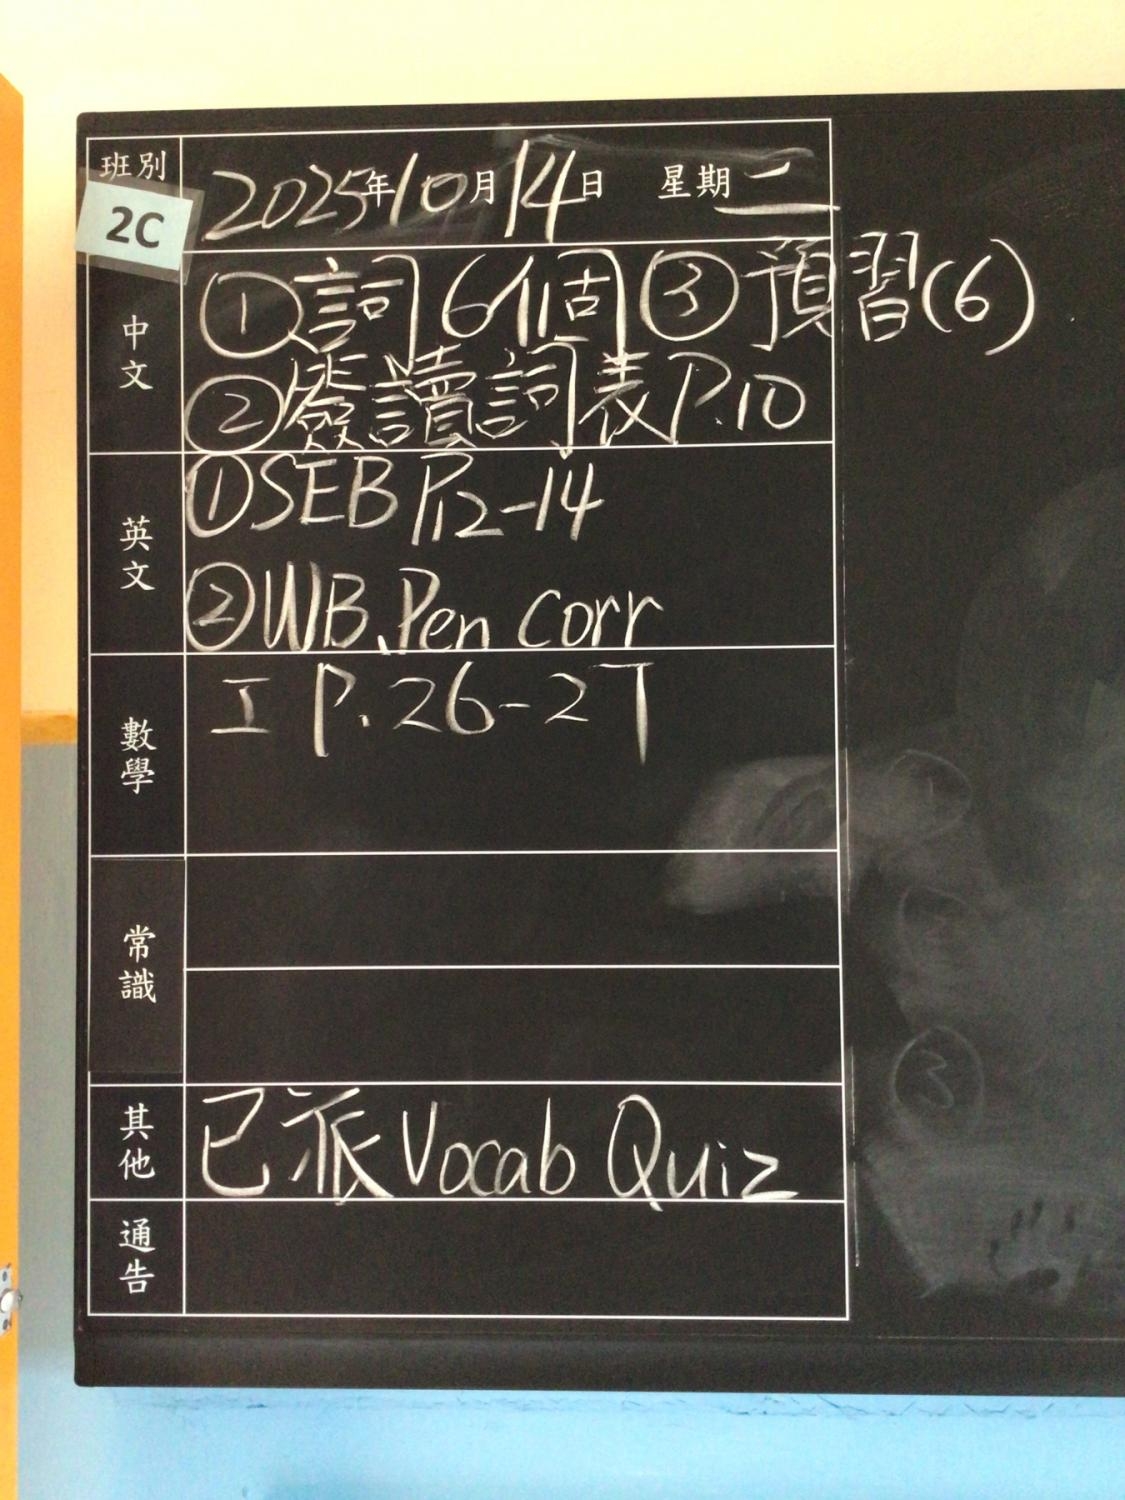 班別
2C
2025年10月14日 星期二
中文
①詞6個 ③預習(6)
②簽讀詞表P.10
英文
①SEB P.12-14
②WB.Pen corr
數學
工 P.26-27
常識
其他
已派Vocab Quiz
通告
③